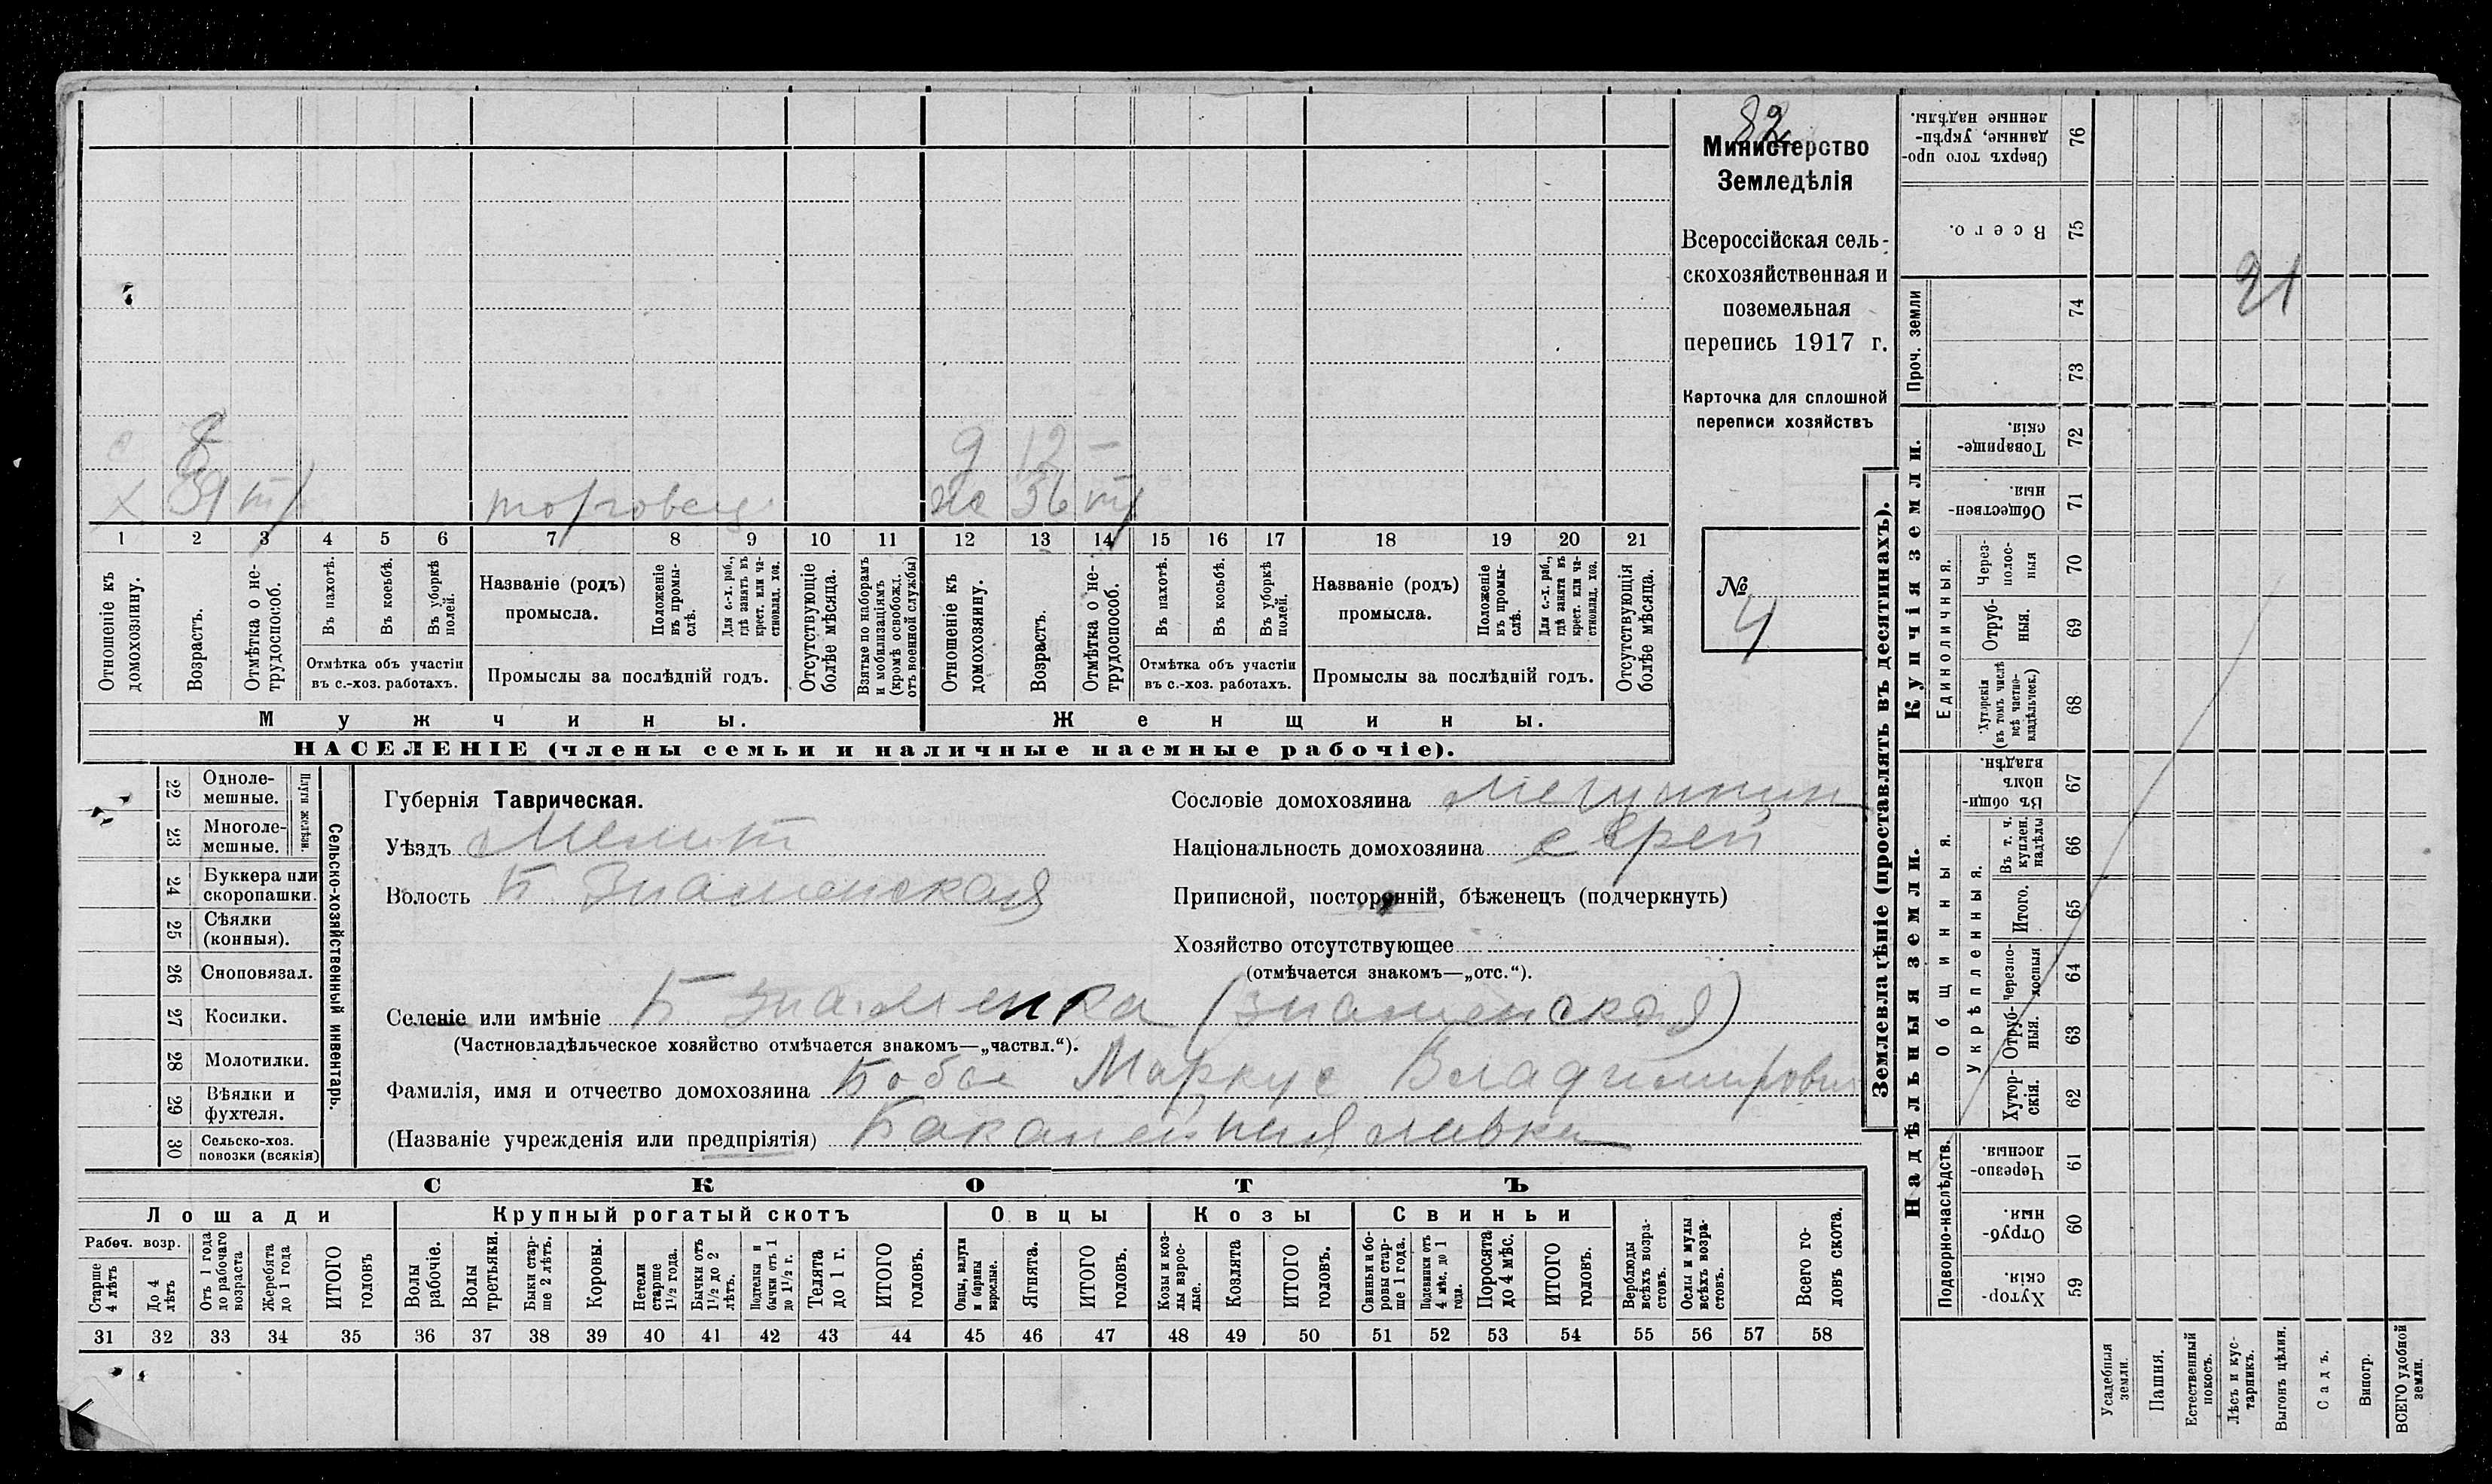 82
Министерство
Земледѣлія
Всероссійская сель-
скохозяйственная и
поземельная
перепись 1917 г.
Карточка для сплошной
переписи хозяйствъ
№
4
с 8 д 12 —
х 39 тр торговец же 36 тр
1 2 3 4 5 6 7 8 9 10 11 12 13 14 15 16 17 18 19 20 21
Отношеніе къ домохозяину.
Возрастъ.
Отмѣтка о не-трудоспособ.
Въ пахотѣ.
Въ косьбѣ.
Въ уборкѣ полей.
Отмѣтка объ участіи
въ с.-хоз. работахъ.
Названіе (родъ)
промысла.
Положеніе въ промы-слѣ.
Для с.-х. раб., гдѣ занятъ въ крест. или ча-стновлад. хоз.
Промыслы за послѣдній годъ.
Отсутствующіе болѣе мѣсяца.
Взятые по наборамъ и мобилизаціямъ (кромѣ освобожд. отъ военной службы)
Отношеніе къ домохозяину.
Возрастъ.
Отмѣтка о не-трудоспособ.
Въ пахотѣ.
Въ косьбѣ.
Въ уборкѣ полей.
Отмѣтка объ участіи
въ с.-хоз. работахъ.
Названіе (родъ)
промысла.
Положеніе въ промы-слѣ.
Для с.-х. раб., гдѣ занята въ крест. или ча-стновлад. хоз.
Промыслы за послѣдній годъ.
Отсутствующія болѣе мѣсяца.
Мужчины. Женщины.
НАСЕЛЕНІЕ (члены семьи и наличные наемные рабочіе).
Сельско-хозяйственный инвентарь.
Плуги желѣзн.
22 Одноле-мешные.
23 Многоле-мешные.
24 Буккера или скоропашки.
25 Сѣялки (конныя).
26 Сноповязал.
27 Косилки.
28 Молотилки.
29 Вѣялки и фухтеля.
30 Сельско-хоз. повозки (всякія)
Губернія Таврическая.
Уѣздъ Мелит
Волость Б Знаменская
Сословіе домохозяина
Національность домохозяина еврей
Приписной, посторонній, бѣженецъ (подчеркнуть)
Хозяйство отсутствующее
(отмѣчается знакомъ—„отс.“).
Селеніе или имѣніе Б Знаменка (Знаменская)
(Частновладѣльческое хозяйство отмѣчается знакомъ—„частвл.“).
Фамилія, имя и отчество домохозяина Маркус Владимирович
(Названіе учрежденія или предпріятія) Бакалейная лавка
СКОТЪ
Лошади Крупный рогатый скотъ Овцы Козы Свиньи
Рабоч. возр.
Старше 4 лѣтъ
До 4 лѣтъ
Отъ 1 года до рабочаго возраста
Жеребята до 1 года
ИТОГО головъ
Волы рабочіе.
Волы третьяки.
Быки стар-ше 2 лѣтъ.
Коровы.
Нетели старше 1½ года.
Бычки отъ 1½ до 2 лѣтъ.
Подтелки и бычки отъ 1 до 1½ г.
Телята до 1 г.
ИТОГО головъ.
Овцы, валухи и бараны взрослые.
Ягнята.
ИТОГО головъ.
Козы и коз-лы взрос-лые.
Козлята
ИТОГО головъ.
Свиньи и бо-ровы стар-ше 1 года.
Подсвинки отъ 4 мѣс. до 1 года.
Поросята до 4 мѣс.
ИТОГО головъ.
Верблюды всѣхъ возра-стовъ.
Ослы и мулы всѣхъ возра-стовъ.
Всего го-ловъ скота.
31 32 33 34 35 36 37 38 39 40 41 42 43 44 45 46 47 48 49 50 51 52 53 54 55 56 57 58
Землевладѣніе (проставлять въ десятинахъ).
Сверхъ того про-данные, укрѣп-ленные надѣлы. 76
Всего. 75
Проч. земли 74
73
Купчія земли.
Товарище-скія. 72
Обществен-ныя. 71
Единоличныя.
Через-полос-ныя 70
Отруб-ныя. 69
Хуторскія (въ томъ числѣ всѣ частно-владѣльческ.) 68
Надѣльныя земли.
Общинныя.
Въ общи-номъ владѣн. 67
Укрѣпленныя.
Въ т. ч. куплен. надѣлы 66
Итого. 65
Черезпо-лосныя 64
Отруб-ныя. 63
Хутор-скія. 62
Подворно-наслѣдств.
Черезпо-лосныя. 61
Отруб-ныя. 60
Хутор-скія. 59
Усадебныя земли.
Пашня.
Естественный покосъ.
Лѣсъ и кус-тарникъ.
Выгонъ цѣлин.
Садъ.
Виногр.
ВСЕГО удобной земли.
21